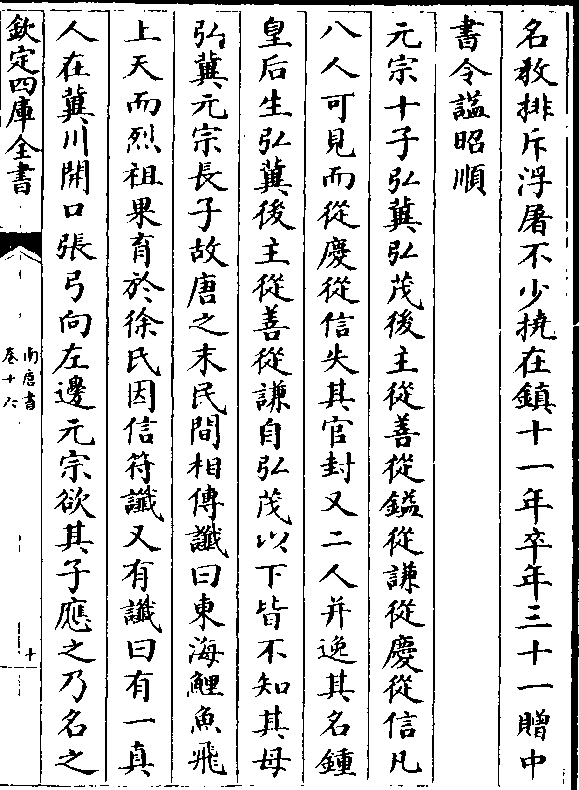 名教排斥浮屠不少撓在鎮十一年卒年三十一贈中
書令謚昭順
元宗十子弘冀弘茂後主從善從鎰從謙從慶從信凡
八人可見而從慶從信失其官封又二人并逸其名鍾
皇后生弘冀後主從善從謙自弘茂以下皆不知其母
弘冀元宗長子故唐之末民間相傳讖曰東海鯉魚飛
上天而烈祖果育於徐氏因信符讖又有讖曰有一真
人在冀川開口張弓向左邊元宗欲其子應之乃名之
欽定四庫全書
南唐書
卷十六
十